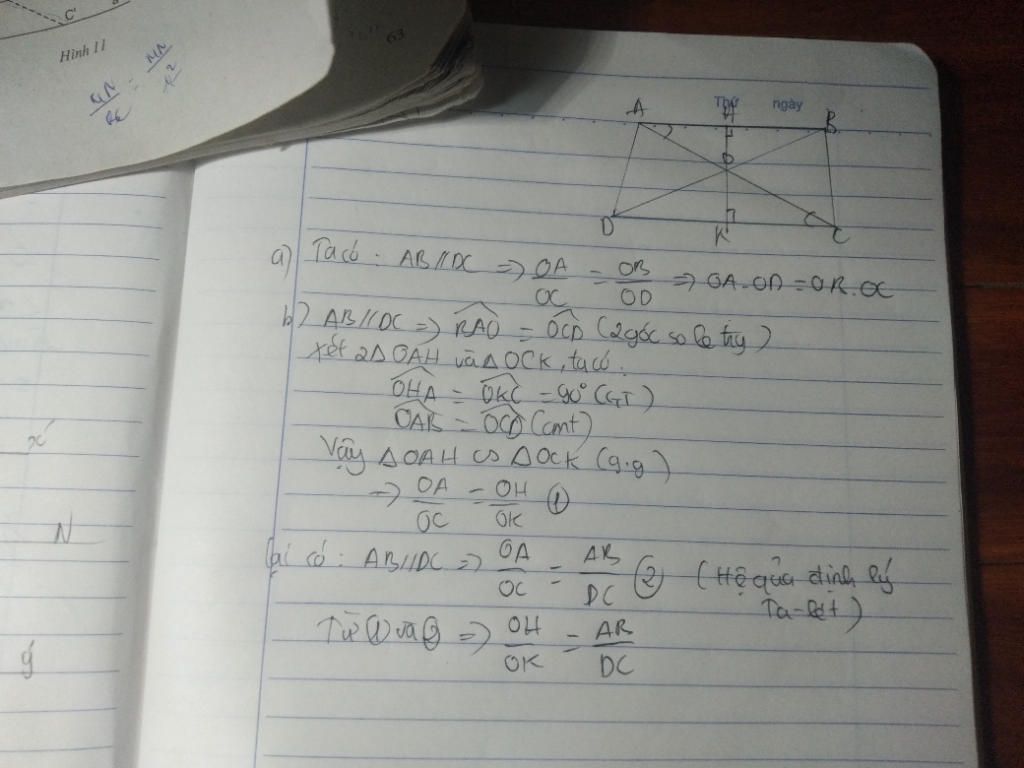 C'
Hình 11
63
MN
Thứ ngày
A H B
O
D K C
a) Ta có : AB // DC => OA/OC = OB/OD => OA.OD = OB.OC
b) AB // DC => BAO = OCD (2 góc so le tr)
Xét 2 Δ OAH và Δ OCK, ta có :
OHA = OKC = 90° (GT)
OAB = OCD (cmt)
Vậy Δ OAH ∽ Δ OCK (g.g)
=> OA/OC = OH/OK ①
Lại có : AB // DC => OA/OC = AB/DC ② (Hệ quả định lý
Ta-lét)
Từ ① và ② => OH/OK = AB/DC
x'
N
ý